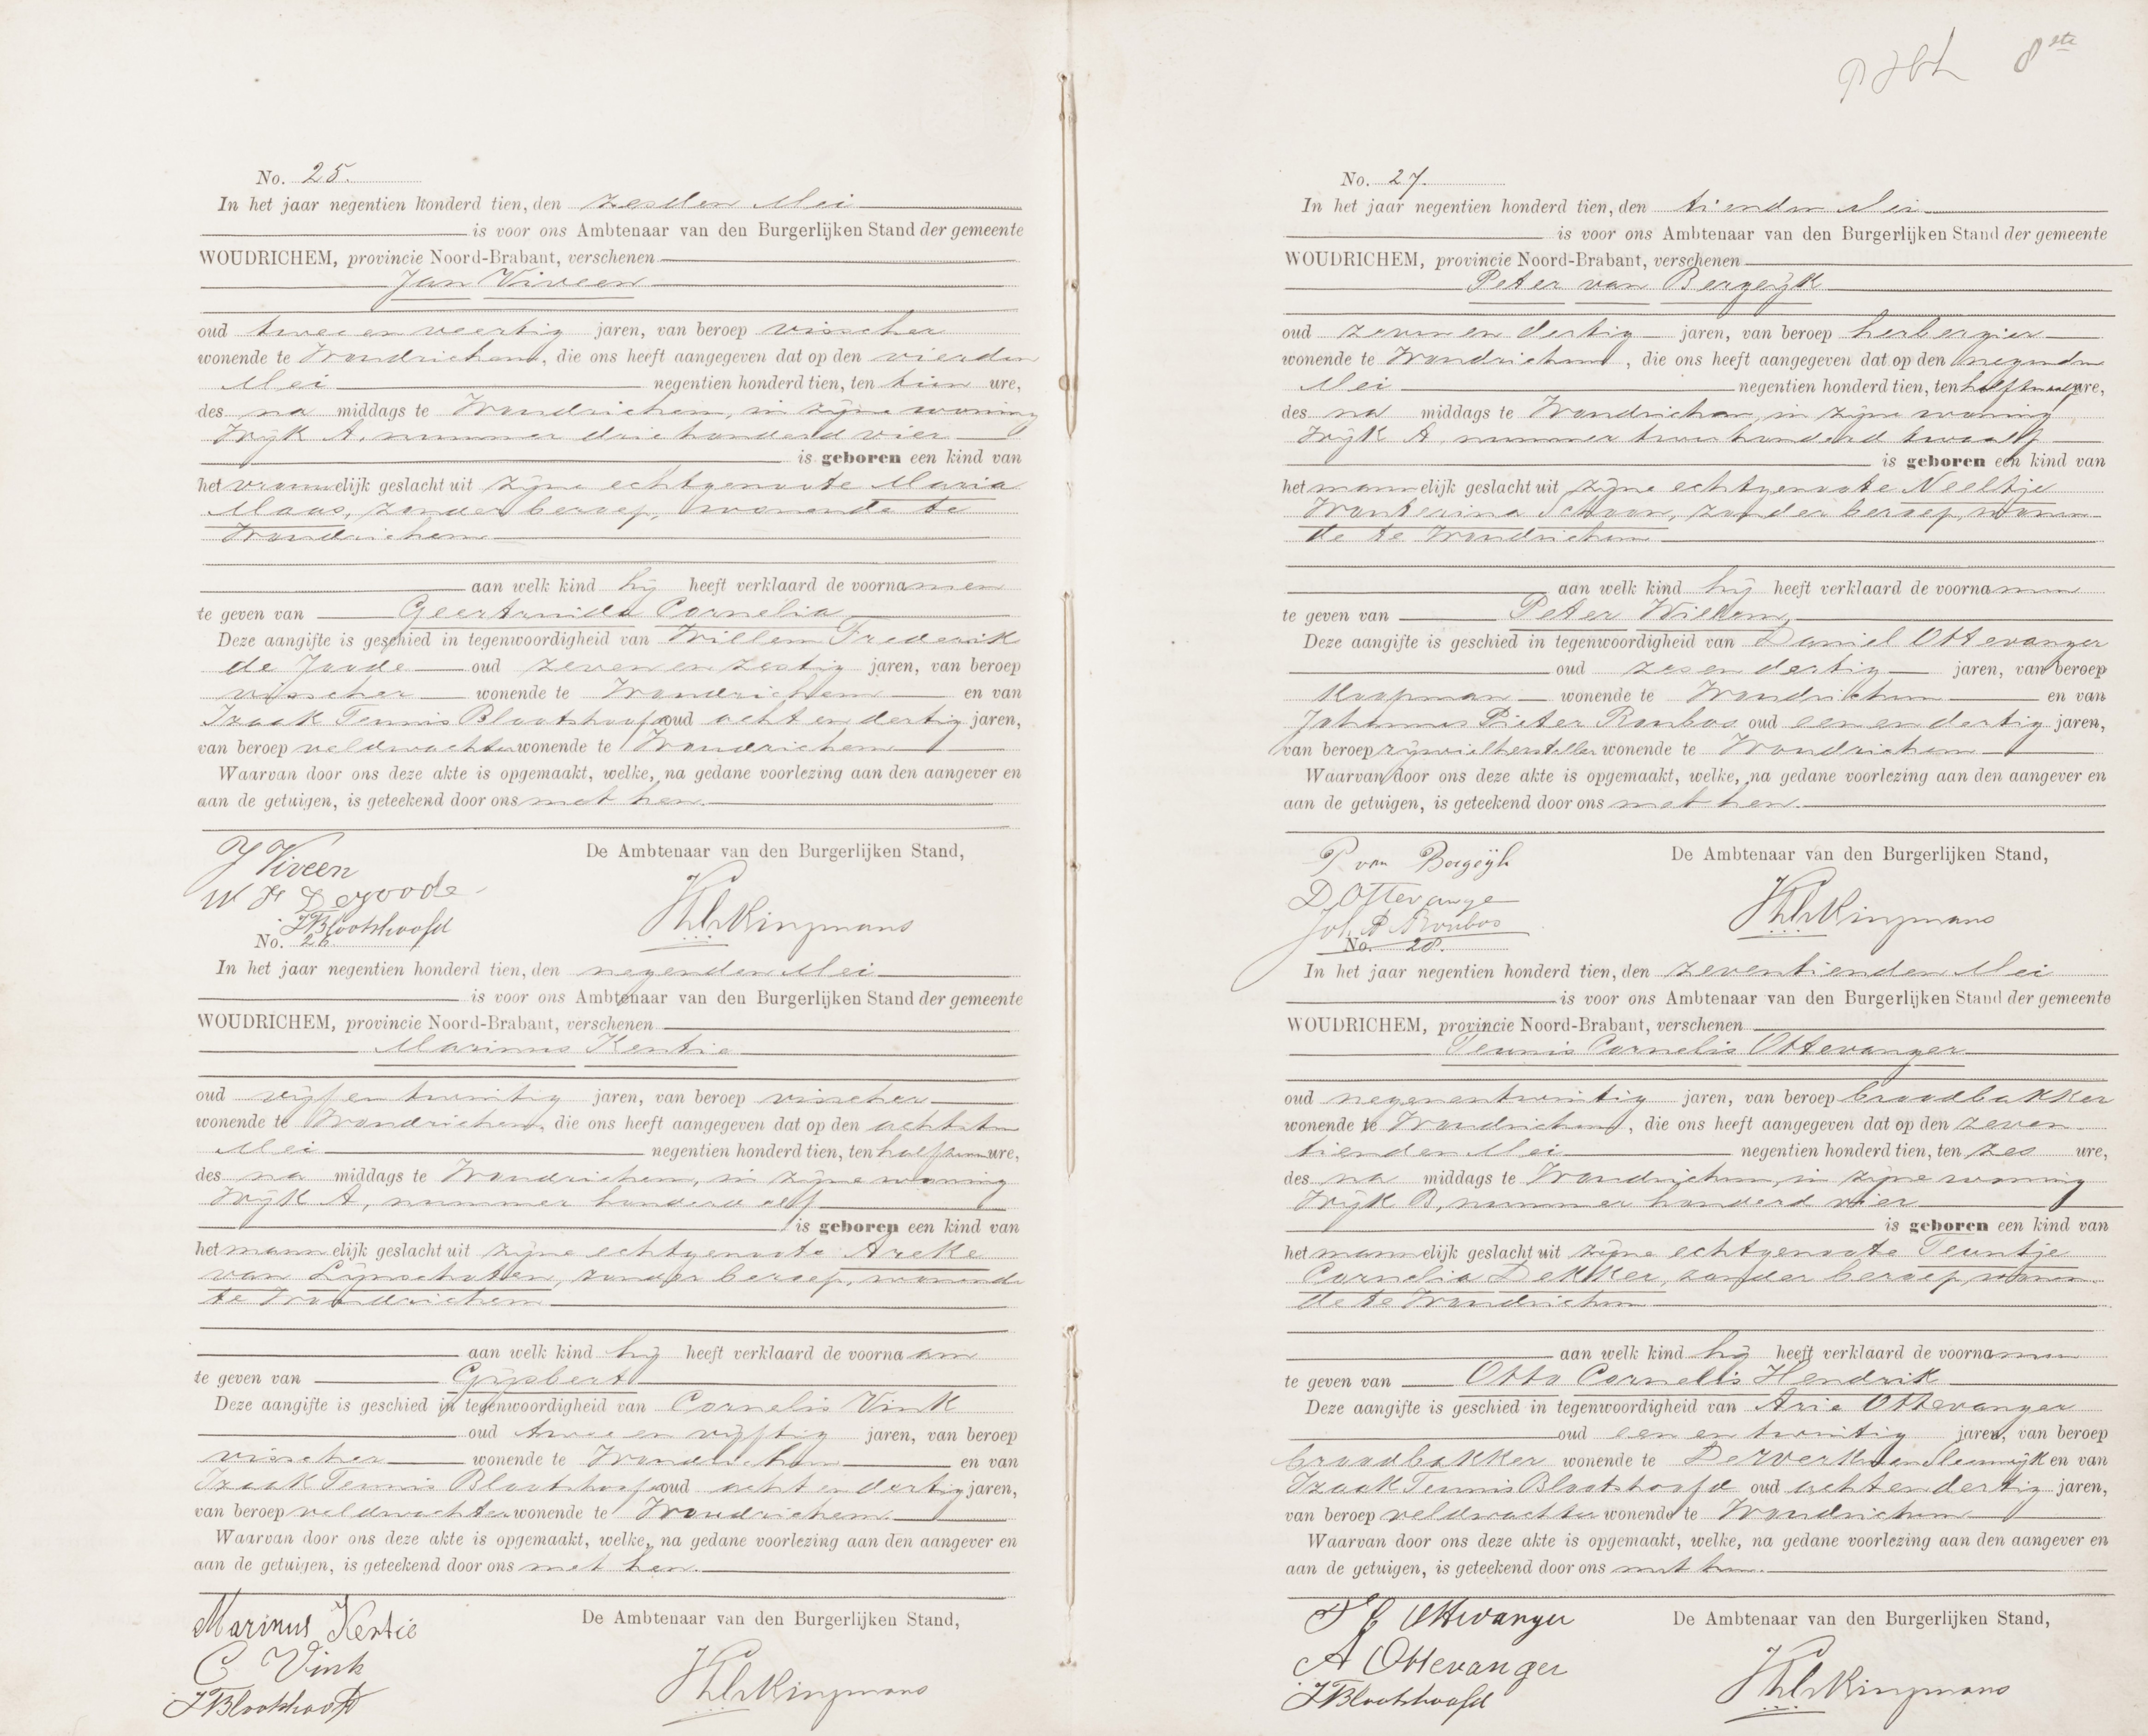 8ste
No. 25.
In het jaar negentien honderd tien, den zesden Mei
is voor ons Ambtenaar van den Burgerlijken Stand der gemeente
WOUDRICHEM, provincie Noord-Brabant, verschenen
Jan Viveen
oud twee en veertig jaren, van beroep visscher
wonende te Woudrichem, die ons heeft aangegeven dat op den vierden
Mei negentien honderd tien, ten tien ure,
des na middags te Woudrichem, in zijne woning
Wijk A, nummer driehonderd vier
is geboren een kind van
het vrouwelijk geslacht uit zijne echtgenoote Maria
Maas, zonder beroep, wonende te
Woudrichem
aan welk kind hij heeft verklaard de voornamen
te geven van Geertruida Cornelia
Deze aangifte is geschied in tegenwoordigheid van Willem Frederik
de Joode oud zeven en zestig jaren, van beroep
visscher wonende te Woudrichem en van
Izaak Teunis Blootshoofd oud acht en dertig jaren,
van beroep veldwachter wonende te Woudrichem
Waarvan door ons deze akte is opgemaakt, welke, na gedane voorlezing aan den aangever en
aan de getuigen, is geteekend door ons met hen.
J Viveen
De Ambtenaar van den Burgerlijken Stand,
W F Dejoode
JTBlootshoofd
No. 26.
In het jaar negentien honderd tien, den negenden Mei
is voor ons Ambtenaar van den Burgerlijken Stand der gemeente
WOUDRICHEM, provincie Noord-Brabant, verschenen
Marinus Kentie
oud vijf en twintig jaren, van beroep visscher
wonende te Woudrichem, die ons heeft aangegeven dat op den achtsten
Mei negentien honderd tien, ten half ure,
des na middags te Woudrichem, in zijne woning
Wijk A, nummer honderd elf
is geboren een kind van
het mannelijk geslacht uit zijne echtgenoote Areke
van Lijnschoten, zonder beroep, wonende
te Woudrichem
aan welk kind hij heeft verklaard de voornaam
te geven van Gijsbert
Deze aangifte is geschied in tegenwoordigheid van Cornelis Vink
oud twee en vijftig jaren, van beroep
visscher wonende te Woudrichem en van
Izaak Teunis Blootshoofd oud acht en dertig jaren,
van beroep veldwachter wonende te Woudrichem
Waarvan door ons deze akte is opgemaakt, welke, na gedane voorlezing aan den aangever en
aan de getuigen, is geteekend door ons met hen.
Marinus Kentie
De Ambtenaar van den Burgerlijken Stand,
C Vink
JTBlootshoofd
No. 27.
In het jaar negentien honderd tien, den tienden Mei
is voor ons Ambtenaar van den Burgerlijken Stand der gemeente
WOUDRICHEM, provincie Noord-Brabant, verschenen
Peter van Bergeijk
oud zeven en dertig jaren, van beroep herbergier
wonende te Woudrichem, die ons heeft aangegeven dat op den negenden
Mei negentien honderd tien, ten half twaalf ure,
des na middags te Woudrichem, in zijne woning
Wijk A, nummer twee honderd twaalf
is geboren een kind van
het mannelijk geslacht uit zijne echtgenoote Neeltje
Wouterina Schoon, zonder beroep, wonen
de te Woudrichem
aan welk kind hij heeft verklaard de voornamen
te geven van Peter Willem,
Deze aangifte is geschied in tegenwoordigheid van Daniel Ottevanger
oud zes en dertig jaren, van beroep
Koopman wonende te Woudrichem en van
Johannes Pieter Ronbos oud een en dertig jaren,
van beroep rijwielhersteller wonende te Woudrichem
Waarvan door ons deze akte is opgemaakt, welke, na gedane voorlezing aan den aangever en
aan de getuigen, is geteekend door ons met hen.
P van Bergeijk
De Ambtenaar van den Burgerlijken Stand,
D Ottevanger
Joh. P Ronbos
No. 28.
In het jaar negentien honderd tien, den zeventienden Mei
is voor ons Ambtenaar van den Burgerlijken Stand der gemeente
WOUDRICHEM, provincie Noord-Brabant, verschenen
Teunis Cornelis Ottevanger
oud negen en twintig jaren, van beroep broodbakker
wonende te Woudrichem, die ons heeft aangegeven dat op den zeven
tienden Mei negentien honderd tien, ten zes ure,
des na middags te Woudrichem, in zijne woning
Wijk B, nummer honderd vier
is geboren een kind van
het mannelijk geslacht uit zijne echtgenoote Teuntje
Cornelia Dekker, zonder beroep, wonen
de te Woudrichem
aan welk kind hij heeft verklaard de voornamen
te geven van Otto Cornelis Hendrik
Deze aangifte is geschied in tegenwoordigheid van Arie Ottevanger
oud een en twintig jaren, van beroep
broodbakker wonende te De Werken en Sleeuwijk en van
Izaak Teunis Blootshoofd oud acht en dertig jaren,
van beroep veldwachter wonende te Woudrichem
Waarvan door ons deze akte is opgemaakt, welke, na gedane voorlezing aan den aangever en
aan de getuigen, is geteekend door ons met hen.
T C Ottevanger
De Ambtenaar van den Burgerlijken Stand,
A Ottevanger
JTBlootshoofd